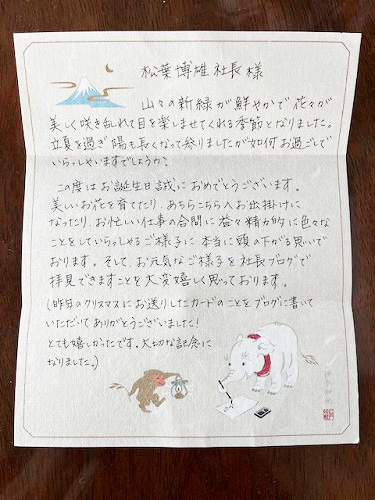 松葉博雄社長様
山々の新緑が鮮やかで花々が
美しく咲き乱れて目を楽しませてくれる季節となりました。
立夏を過ぎ陽も長くなって参りましたが如何お過ごしで
いらっしゃいますでしょうか?
この度はお誕生日誠におめでとうございます。
美しいお花を育てたり、あちらこちらへお出掛けに
なったり、お忙しい仕事の合間に益々精力的に色々な
ことをしていらっしゃるご様子に本当に頭の下がる思いで
おります。そして、お元気なご様子を社長ブログで
拝見できますことを大変嬉しく思っております。
(昨年のクリスマスにお送りしたカードのことをブログに書いて
いただいてありがとうございました!
とても嬉しかったです。大切な記念に
なりました。)